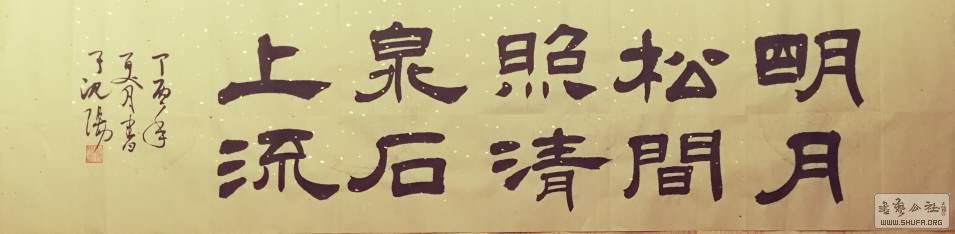 明月
松間
照清
泉石
上流
丁酉年
夏月書
于沈陽
书艺公社
WWW.SHUFA.ORG